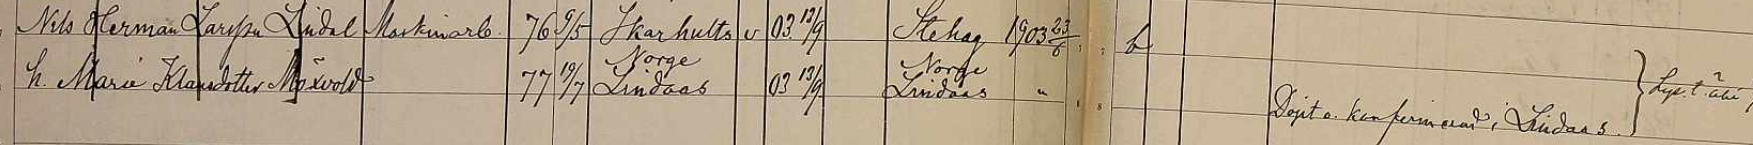 Nils Herman Larsson Lindal Maskinarb. 76 9/5 Skarhults v 03 13/9 Stehag 1903 23/6 b
h. Maria Klausdotter 77 19/7 Norge Lindaas 03 13/9 Norge Lindaas "
Döpt o. konfirmerad i Lindaas.